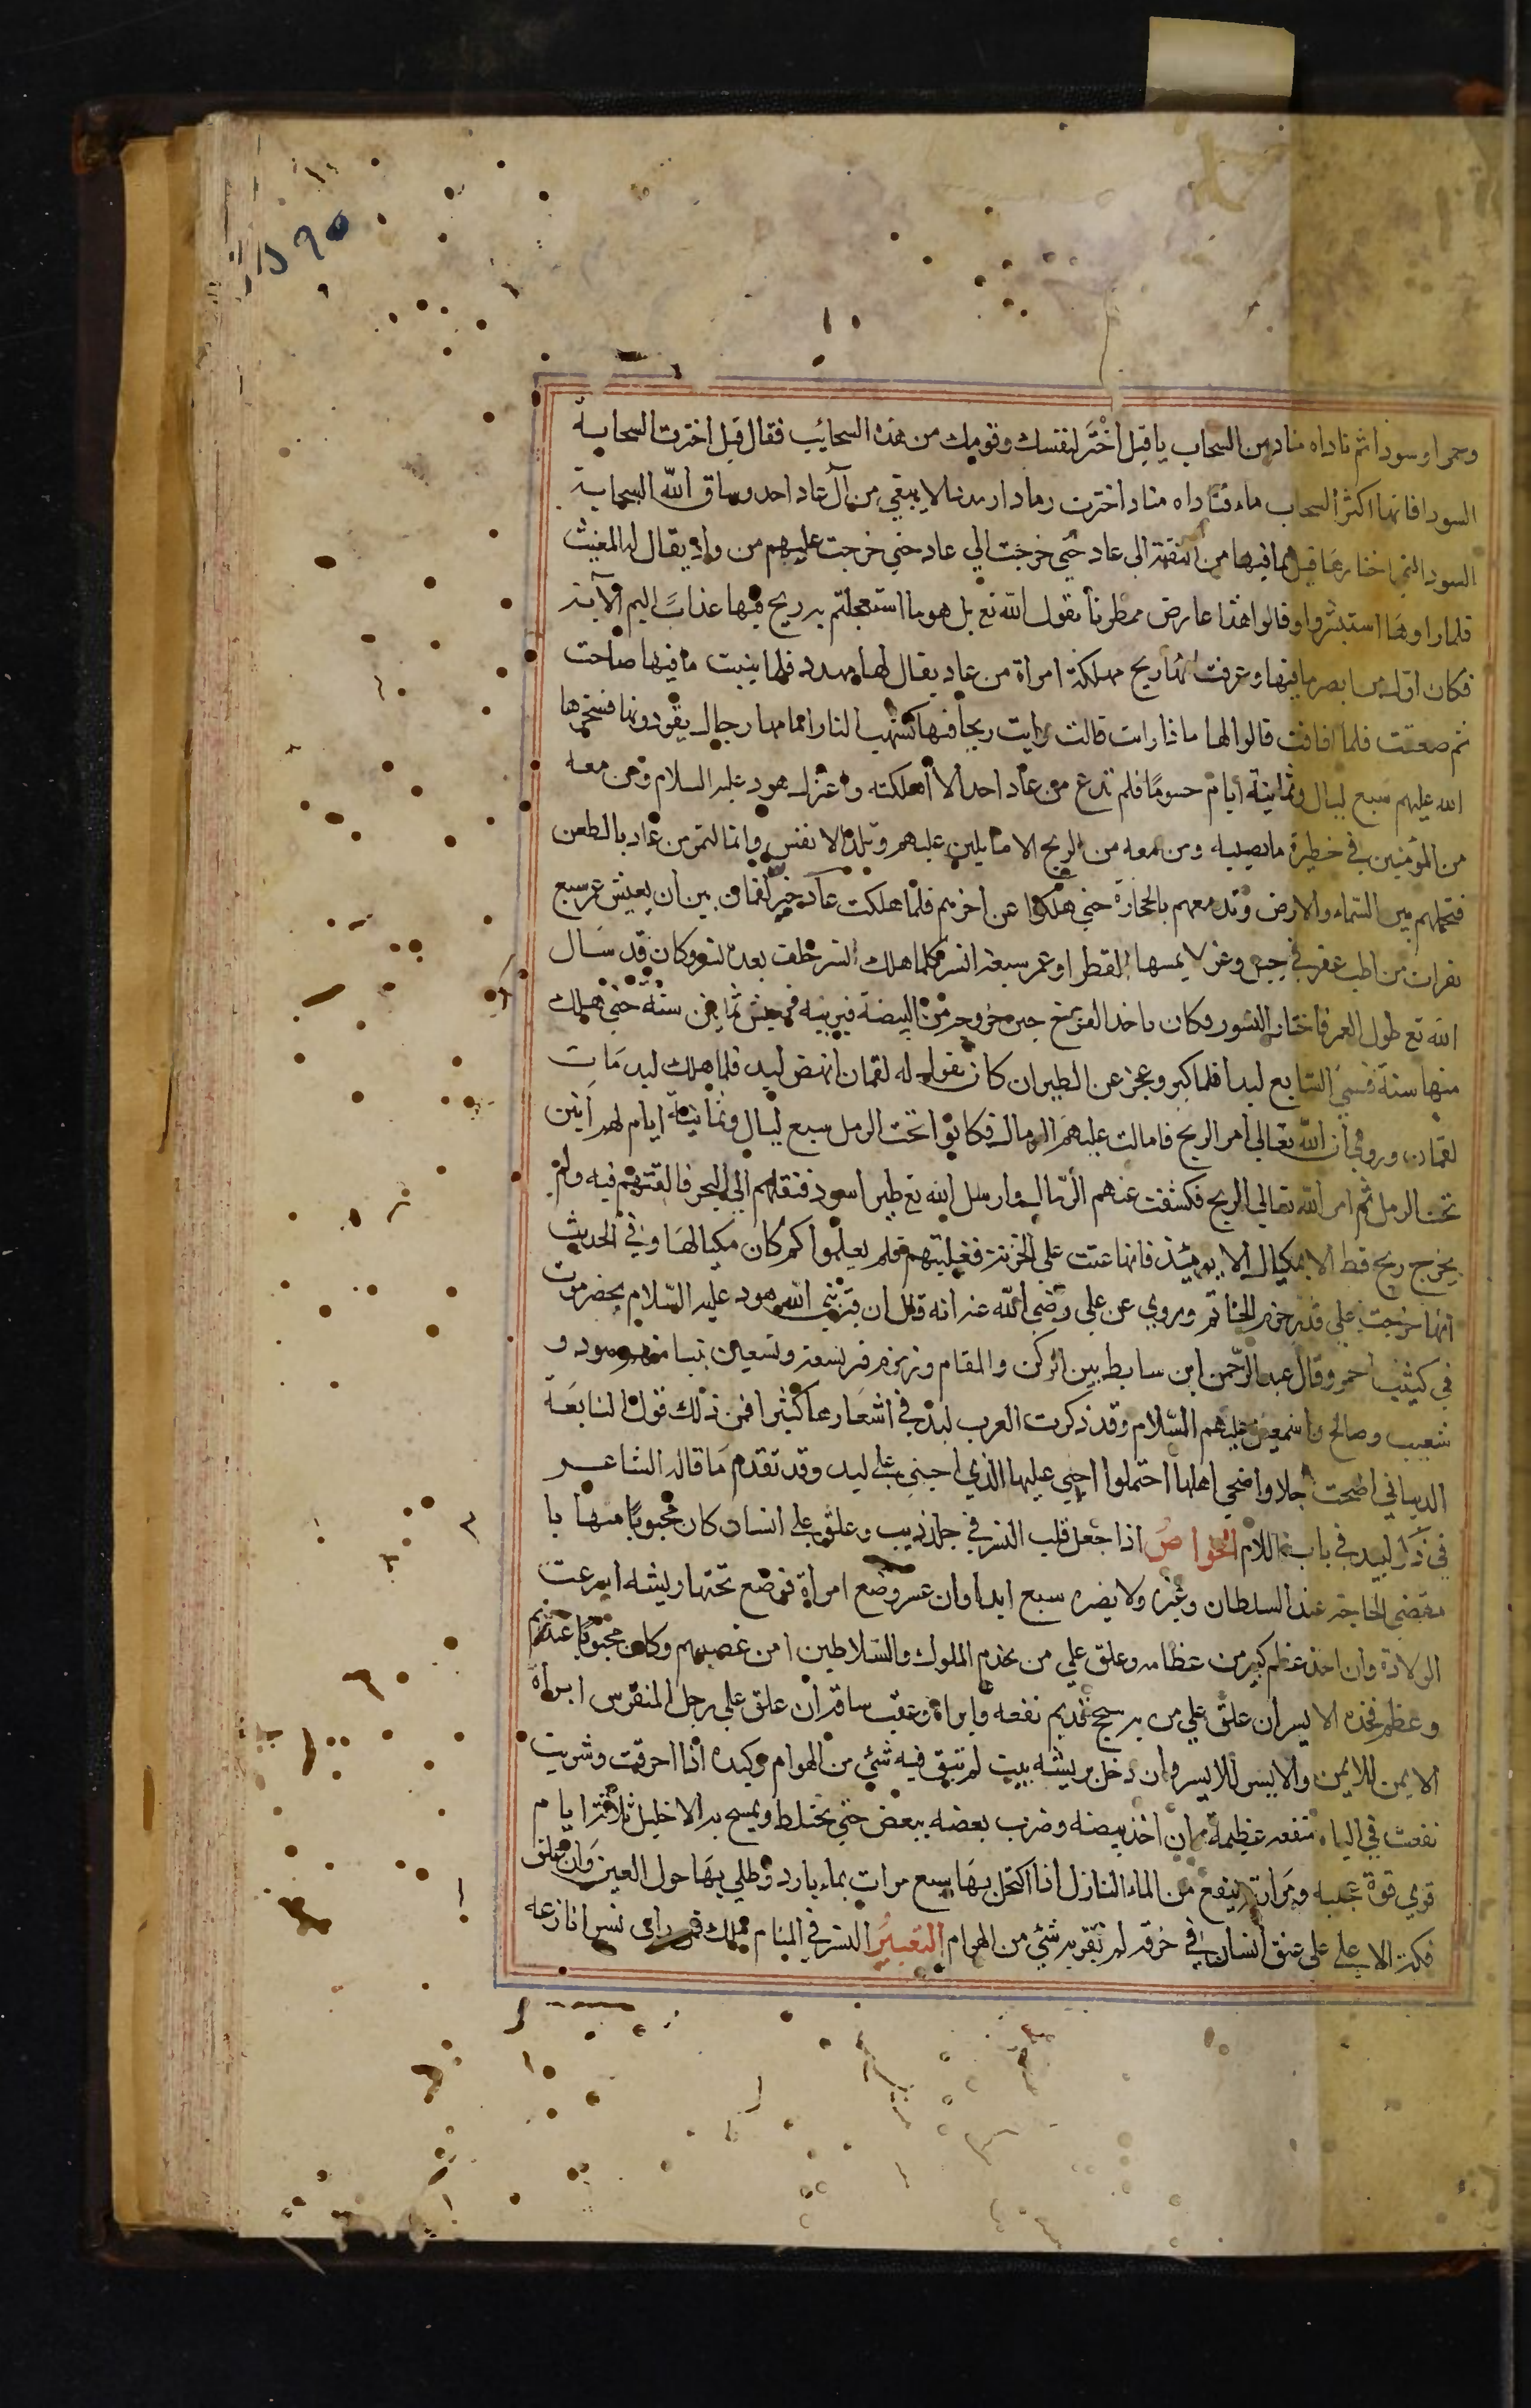 ٥٩٥
وحمرا وسودا ثم ناداه مناد من السحاب يا قيل اختر لنفسك وقومك من هذه السحائب فقال قيل اخترت السحابة
السودا فانها اكثر السحاب ماء فناداه مناد اخترت رمادا رمددا لا يبقي من آل عاد احد وساق الله السحابة
السودا التي اختارها قيل بما فيها من النقمة الي عاد حتي خرجت عليهم من واد يقال له المغيث
فلما راوها استبشروا وقالوا هذا عارض ممطرنا يقول الله تع بل هو ما استعجلتم به ريح فيها عذاب اليم الآية
فكان اول من ابصر ما فيها وعرفت انها ريح مهلكة امراة من عاد يقال لها مهدد فلما تبينت ما فيها صاحت
ثم صعقت فلما افاقت قالوا لها ماذا رايت قالت رايت ريحا فيها كشهب النار امامها رجال يقودونها فسخرها
الله عليهم سبع ليال وثمانية أيام حسوما فلم تدع من عاد احدا الا أهلكته واعتزل هود عليه السلام ومن معه
من المؤمنين في حظيرة ما يصيبه ومن معه من الريح الا ما يلين عليهم وتلذ الانفس وانها لتمر من عاد بالطعن
فتحملهم بين السماء والارض وتدمغهم بالحجارة حتي هلكوا عن اخرهم فلما هلكت عاد خير لقمان بين ان يعيش عمر سبع
بقرات من اطب عفر في جبل وعر لا يمسها القطر او عمر سبعة انسر كلما هلك النسر خلف بعده نسر وكان قد سال
الله تع طول العمر فاختار النسور وكان ياخذ الفرخ حين خروجه من البيضة فيربيه فيعيش ثمانين سنة حتي هلك
منها ستة فسمي السابع لبدا فلما كبر وعجز عن الطيران كان يقول له لقمان انهض لبد فلما هلك لبد مات
لقمان وروي أن الله تعالي امر الريح فامالت عليهم الرمال فكانوا تحت الرمل سبع ليال وثمانية ايام لهم أنين
تحت الرمل ثم امر الله تعالي الريح فكشفت عنهم الرمال وارسل الله تع طيرا اسود فنقلهم الي البحر فالقتهم فيه ولم
يخرج ريح قط الا بمكيال الا يومئذ فانها عتت علي الخزنة فغلبتهم فلم يعلموا كم كان مكيالها وفي الحديث
انها خرجت علي قدر خرق الخاتم وروي عن علي رضي الله عنه انه قال ان قبر نبي الله هود عليه السلام بحضرموت
في كثيب احمر وقال عبد الرحمن ابن سابط بين الركن والمقام وزمزم قبر تسعة وتسعين نبيا منهم هود و
شعيب وصالح واسمعيل عليهم السلام وقد ذكرت العرب لبد في اشعارها كثيرا فمن ذلك قول النابغة
الذبياني اضحت خلا واضحي اهلها احتملوا اخني عليها الذي اخني علي لبد وقد تقدم ما قاله الشاعر
في ذا لبد في باب اللام الخواص اذا جعل قلب النسر في جلد ذيب وعلق علي انسان كان محبوبا مهابا
مقضي الحاجة عند السلطان وغيره ولا يضره سبع ابدا وان عسر وضع امراة فوضع تحتها ريشه اسرعت
الولادة وان اخذ عظم كبير من عظامه وعلق علي من يخدم الملوك والسلاطين امن غضبهم وكان محبوبا عندهم
وعظم فخذه الايسر ان علق علي من به سحج قديم نفعه وابراه وعقب ساقه ان علق علي رجل المنقرس ابراه
الايمن للايمن والايسر للايسر وان دخن بريشه بيت لم يبق فيه شيء من الهوام وكبده اذا احرقت وشربت
نفعت في الباه منفعة عظيمة وان اخذ بيضه وضرب بعضه ببعض حتي يختلط ويمسح به الاحليل ثلاثة ايام
قوي قوة عجيبه ومرارته ينفع من الماء النازل اذا اكتحل بها سبع مرات بماء بارد وطلي بها حول العين وان علق
فكه الاعلي علي عنق انسان في خرقة لم تقربه شيء من الهوام التعبير النسر في المنام ملك فمن راي نسرا نازعه